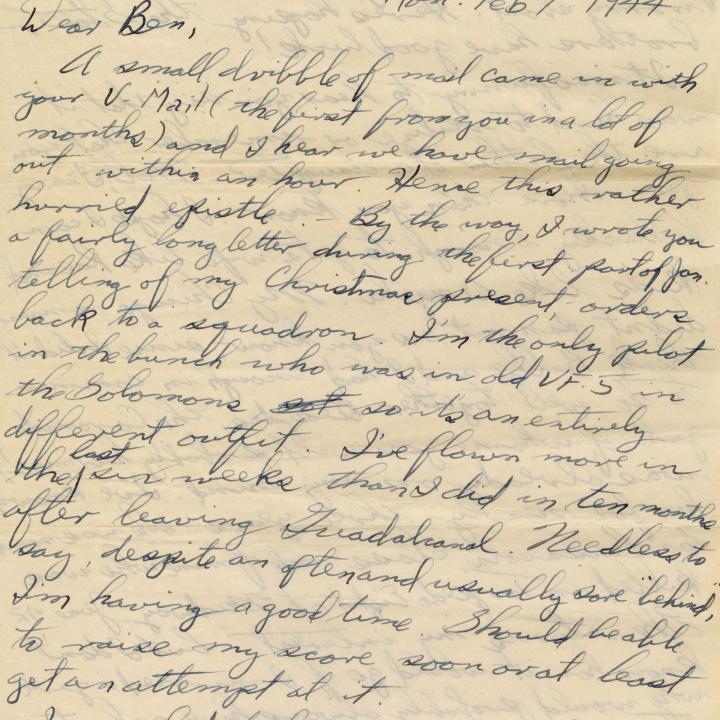 Mon. Feb 7 1944
Dear Ben,
A small dribble of mail came in with
your V-Mail (the first from you in a lot of
months) and I hear we have mail going
out within an hour. Hence this rather
hurried epistle. - By the way, I wrote you
a fairly long letter during the first part of Jan.
telling of my Christmas present, orders
back to a squadron. I'm the only pilot
in the bunch who was in old VF-5 in
the Solomons so its an entirely
different outfit. I've flown more in
the last six weeks than I did in ten months
after leaving Guadalcanal. Needless to
say, despite an often and usually sore "behind",
I'm having a good time. Should be able
to raise my score soon or at least
get an attempt at it.